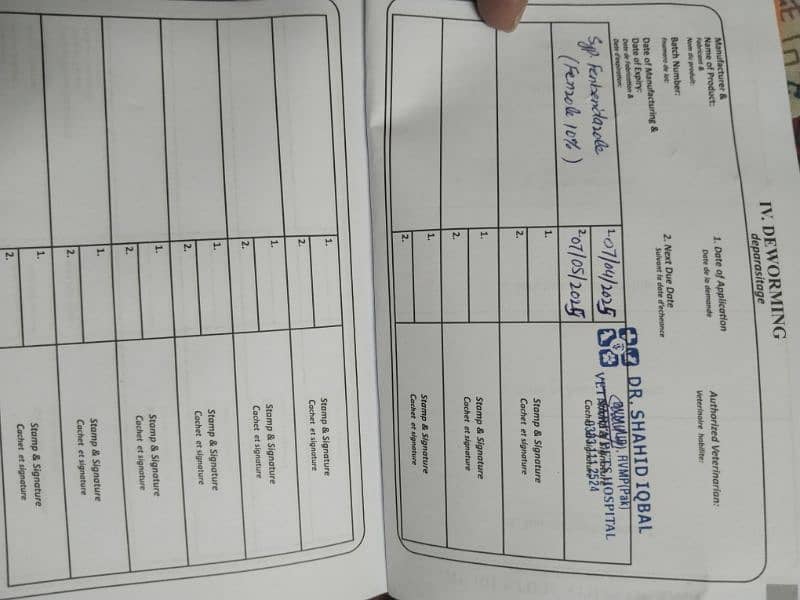 IV. DEWORMING
deparasitage
Manufacturer &
Name of Product:
Fabricant &
Nom du produit:
Batch Number:
Enumero de lot:
Date of Manufacturing &
Date of Expiry:
Date de Fabrication &
Date d'expiration:
1. Date of Application
Date de la demande
2. Next Due Date
Suivant la date d'echeance
Authorized Veterinarian:
Veterinaire habilite:
Syp. Fenbendazole
(Fenzole 10%)
1. 07/04/2025
2. 07/05/2025
DR. SHAHID IQBAL
RVMP(Pak)
HOSPITAL
1.
2.
Stamp & Signature
Cachet et signature
1.
2.
Stamp & Signature
Cachet et signature
1.
2.
Stamp & Signature
Cachet et signature
1.
2.
Stamp & Signature
Cachet et signature
1.
2.
Stamp & Signature
Cachet et signature
1.
2.
Stamp & Signature
Cachet et signature
1.
2.
Stamp & Signature
Cachet et signature
1.
2.
Stamp & Signature
Cachet et signature
1.
2.
Stamp & Signature
Cachet et signature